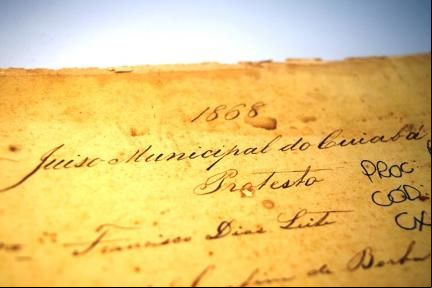 1868
Juiso Municipal do Cuiabá
Protesto
PROC.
CÓD.
CX
Francisco Dias Leite
de Borba